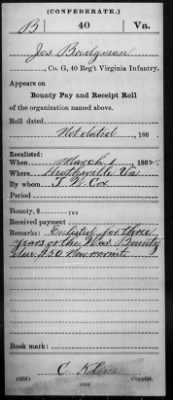 (CONFEDERATE.)
B 40 Va.
Jos
, Co. G, 40 Reg't Virginia Infantry.
Appears on
Bounty Pay and Receipt Roll
of the organization named above.
Roll dated
Not dated, 186 .
Reenlisted:
When March 1, 186
Where Heathsville Va
By whom T. W. Cox
Period
Bounty, $
Received payment
Remarks: Enlisted for three
years or the War. Bounty
due $50
Book mark:
Copyist.